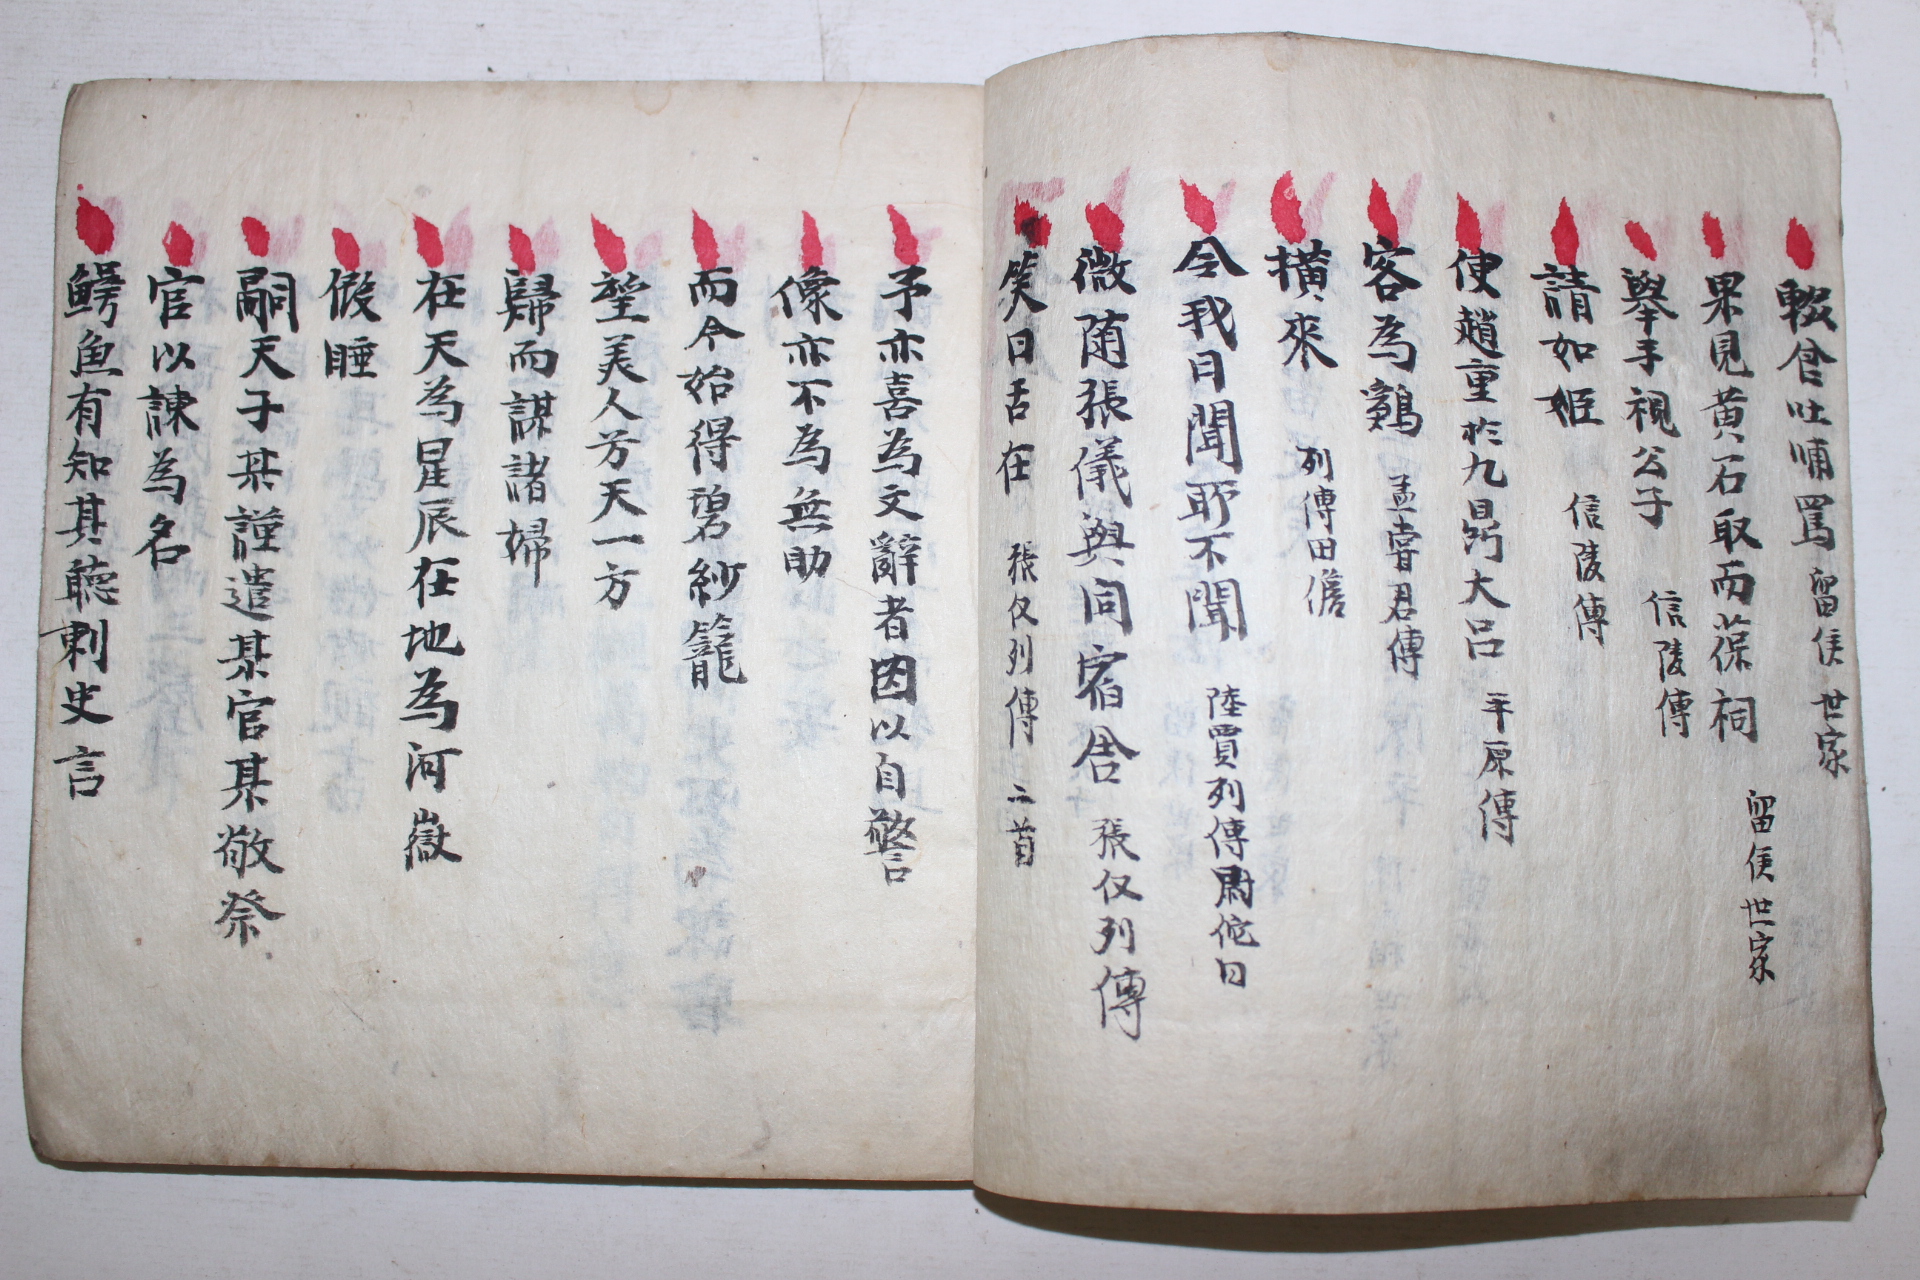 輟食吐哺罵 留侯世家
果見黃石取而葆祠 留侯世家
擧手視公子 信陵傳
請如姬 信陵傳
使趙重於九鼎大呂 平原傳
客為鷄 孟嘗君傳
橫來 列傳田儋
令我日聞所不聞 陸賈列傳尉佗曰
微隨張儀與同宿舍 張仪列傳
笑曰舌在 張仪列傳 二首
予亦喜為文辭者因以自警
像亦不為無助
而今始得碧紗籠
望美人方天一方
歸而謀諸婦
在天為星辰在地為河嶽
假睡
嗣天子某謹遣某官某敬祭
官以諫為名
鰐魚有知其聽刺史言